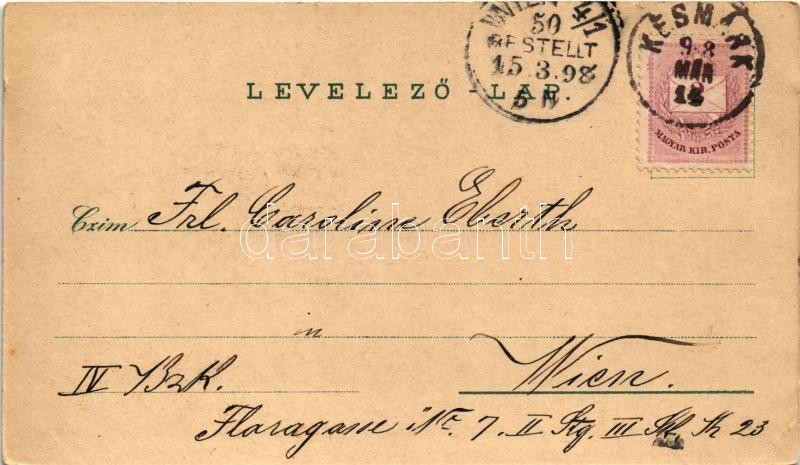 WIEN 4/1
50
BESTELLT
15.3.98
5 N
KÉSMÁRK
98
MÁR
14
2
MAGYAR KIR. POSTA
LEVELEZŐ-LAP.
Czim Frl. Caroline Eberth
darabanth
in
IV Bzk. Wien.
Floragasse Nr. 7. II Stg. III 23